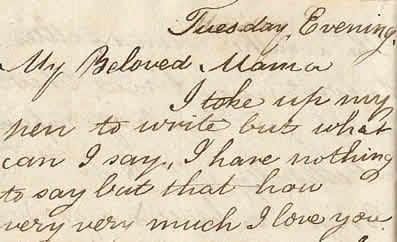 Tuesday, Evening,
My Beloved Mama
I take up my
pen to write but what
can I say, I have nothing
to say but that how
very very much I love you.